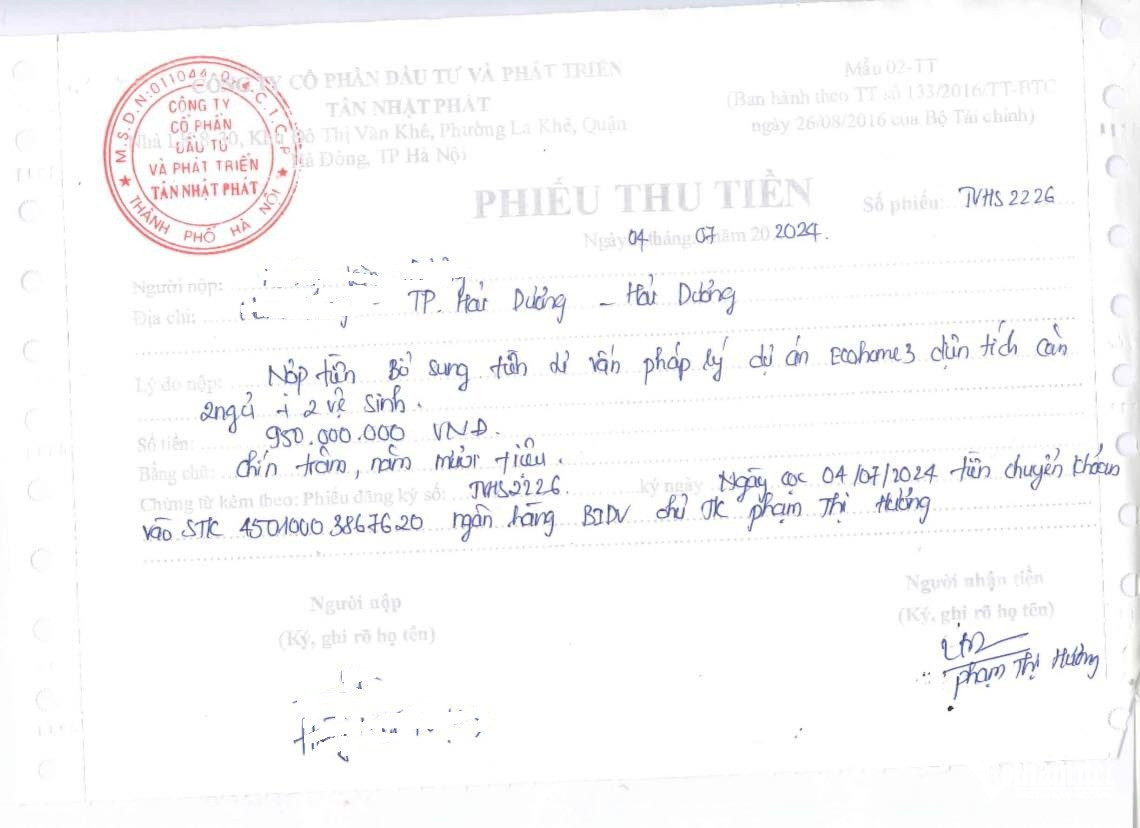 CÔNG TY CỔ PHẦN ĐẦU TƯ VÀ PHÁT TRIỂN
TÂN NHẬT PHÁT
Khu Đô Thị Văn Khê, Phường La Khê, Quận
Hà Đông, TP Hà Nội
M.S.D.N:011044 C.T.C.P
CÔNG TY
CỔ PHẦN
ĐẦU TƯ
VÀ PHÁT TRIỂN
TÂN NHẬT PHÁT
THÀNH PHỐ HÀ NỘI
Mẫu 02-TT
(Ban hành theo TT số 133/2016/TT-BTC
ngày 26/08/2016 của Bộ Tài chính)
PHIẾU THU TIỀN
Số phiếu: TVHS 2226
Ngày 04 tháng 07 năm 20 2024.
Người nộp:
Địa chỉ: TP. Hải Dương - Hải Dương
Lý do nộp: Nộp tiền Bổ sung tiền dư vấn pháp lý dự án Ecohome3 diện tích căn
2ngủ + 2 vệ sinh.
Số tiền: 950.000.000 VNĐ.
Bằng chữ: chín trăm, năm mươi triệu.
Chứng từ kèm theo: Phiếu đăng ký số: TVHS2226. ký ngày Ngày cọc 04/07/2024 tiền chuyển khoản
vào STK 45010003867620 ngân hàng BIDV chủ TK phạm Thị Hương
Người nộp
(Ký, ghi rõ họ tên)
Người nhận tiền
(Ký, ghi rõ họ tên)
phạm Thị Hương